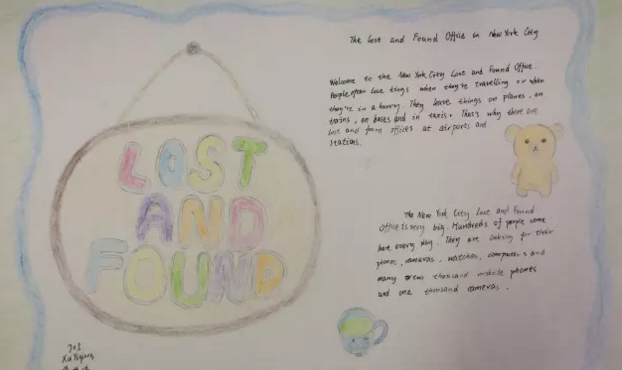 LOST
AND
FOUND
The Lost and Found Office in New York City
Welcome to the New York City Love and Found Office.
People often lose tings when they're travelling or when
they're in a hurry. They leave things on planes, on
trains, on buses and in taxis. That's why there are
lost and found offices at airports and
stations.
The New York City Love and Found
Office is very big. Hundreds of people come
here every day. They are looking for their
phones, cameras, watches, computers and
many two thousand mobile phones
and one thousand cameras.